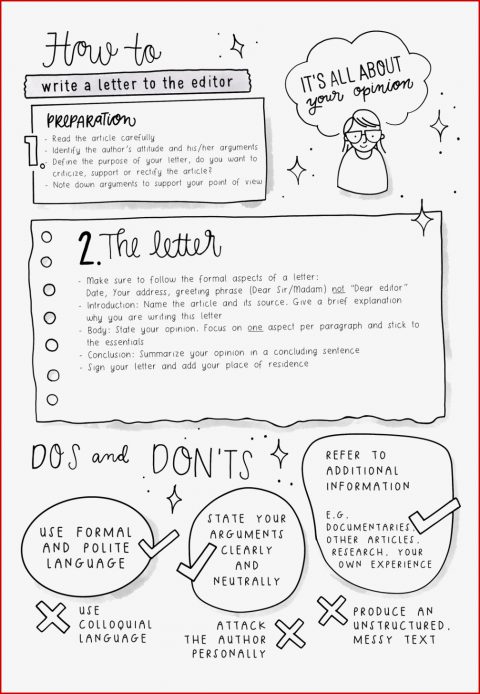 How to
write a letter to the editor
IT'S ALL ABOUT
your opinion
PREPARATION
1.
- Read the article carefully
- Identify the author's attitude and his/her arguments
- Define the purpose of your letter, do you want to
criticize, support or rectify the article?
- Note down arguments to support your point of view
2. The letter
- Make sure to follow the formal aspects of a letter:
Date, Your address, greeting phrase (Dear Sir/Madam) not "Dear editor"
- Introduction: Name the article and its source. Give a brief explanation
why you are writing this letter
- Body: State your opinion. Focus on one aspect per paragraph and stick to
the essentials
- Conclusion: Summarize your opinion in a concluding sentence
- Sign your letter and add your place of residence
DOS and DON'TS
USE FORMAL
AND POLITE
LANGUAGE
STATE YOUR
ARGUMENTS
CLEARLY
AND
NEUTRALLY
REFER TO
ADDITIONAL
INFORMATION
E.G.
DOCUMENTARIES,
OTHER ARTICLES,
RESEARCH, YOUR
OWN EXPERIENCE
USE
COLLOQUIAL
LANGUAGE
ATTACK
THE AUTHOR
PERSONALLY
PRODUCE AN
UNSTRUCTURED,
MESSY TEXT